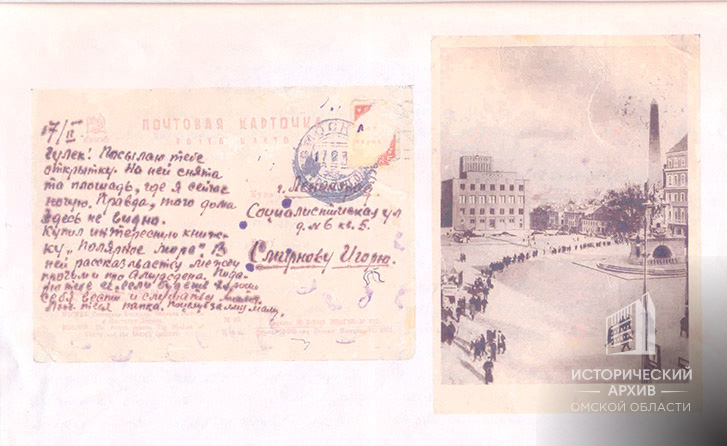 17/II
ПОЧТОВАЯ КАРТОЧКА
МОСКВА
Гулек! Посылаю тебе
открытку. На ней снята
та площадь, где я сейчас
ночую. Правда, того дома
здесь не видно.
Купил интересную книж-
ку „Полярное моря" В
ней рассказывают между
прочим и про Амундсена. Пода-
рю тебе её, если будешь хорошо
себя вести и слушать маму.
твоя папка. Поцелуй за меня маму.
г. Ленинград
Социалистическая ул
д. № 6 кв. 5.
Смирнову Игорю.
ИСТОРИЧЕСКИЙ
АРХИВ
ОМСКОЙ ОБЛАСТИ